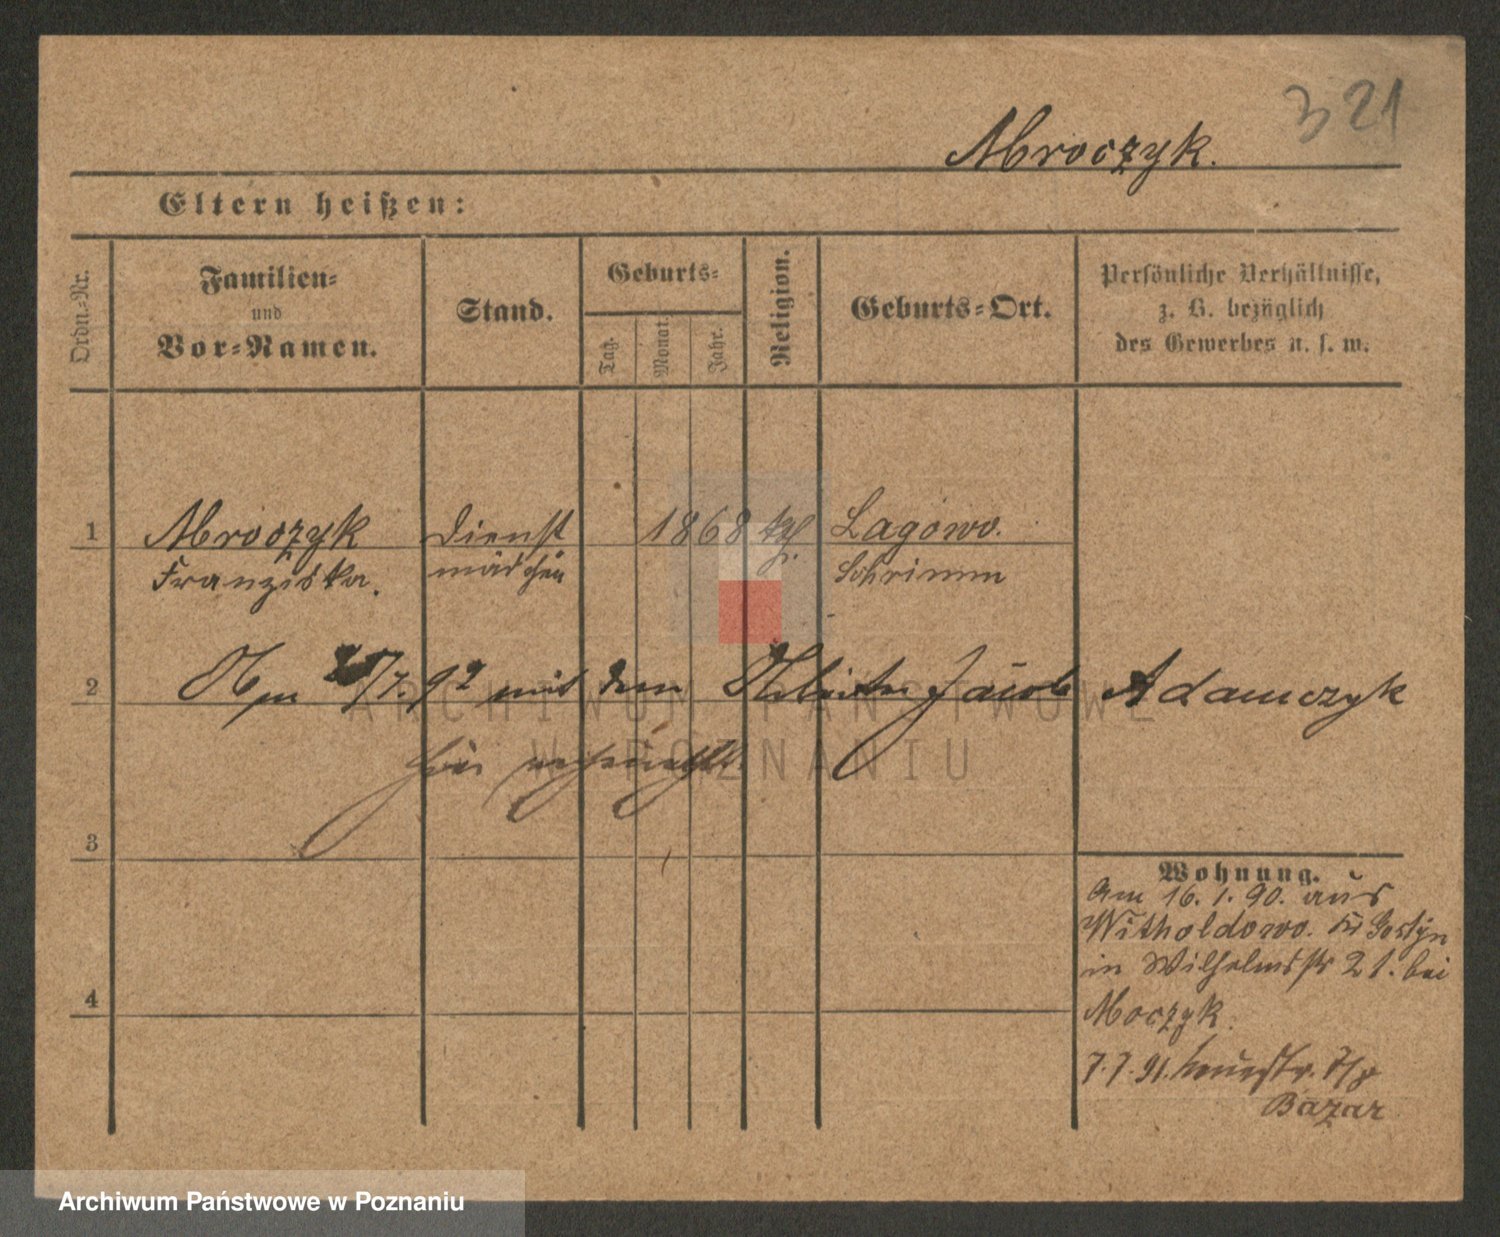 321
Mroczyk.
Eltern heißen:
Ordn.-Nr.
Familien-
und
Vor-Namen.
Stand.
Geburts-
Tag.
Monat.
Jahr.
Religion.
Geburts-Ort.
Persönliche Verhältnisse,
z. B. bezüglich
des Gewerbes u. s. w.
1 Mroczyk Dienst 1868 Lagowo.
Franziska. mädchen Schrimm
2 Am /7. 92 mit dem Arbeiter Jacob Adamczyk
hier
3
Wohnung.
Am 16. 1. 90. aus
Witholdowo. Kr Gostyn
in Wilhelmstr 21. bei
4
Moczyk.
7. 7. 91. Neuestr. 7/8
Bazar
ARCHIWUM PAŃSTWOWE
W POZNANIU
Archiwum Państwowe w Poznaniu